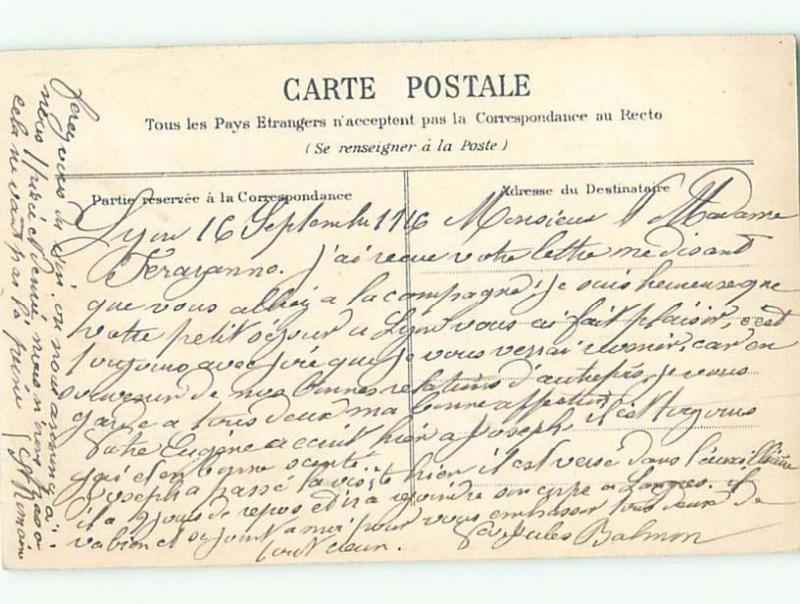 CARTE POSTALE
Tous les Pays Etrangers n'acceptent pas la Correspondance au Recto
(Se renseigner à la Poste)
Partie réservée à la Correspondance
Adresse du Destinataire
Lyon 16 Septembre 1916 Monsieur Madame
J'ai reçue votre lettre me disant
que vous alliez a la compagne; je suis heureuse que
votre petit séjour a Lyon vous ai fait plaisir, c'est
toujours avec joie que je vous verrai revenir, car en
souvenir de nos bonnes relations d'autrefois, je vous
garde a tous deux ma bonne affection
Votre Eugène a écrit hier a Joseph, il est toujours
gai et en bonne santé.
Joseph a passé la visite hier il est versé dans
il a 2 jours de repos et ira rejoindre son corps a Langres. il
va bien et se joint a moi pour vous embrasser tous deux de
tout cœur. Jules Balmon
nous
cela ne vaut pas la peine